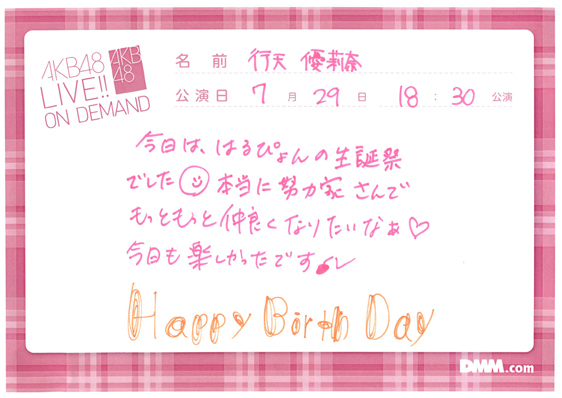 AKB48
LIVE!!
ON DEMAND
AKB
48
名 前 行天 優莉奈
公演日 7 月 29 日 18 : 30 公演
今日は、はるぴょんの生誕祭
でした 本当に努力家さんで
もっともっと仲良くなりたいなぁ♡
今日も楽しかったです
Happy Birth Day
DMM.com